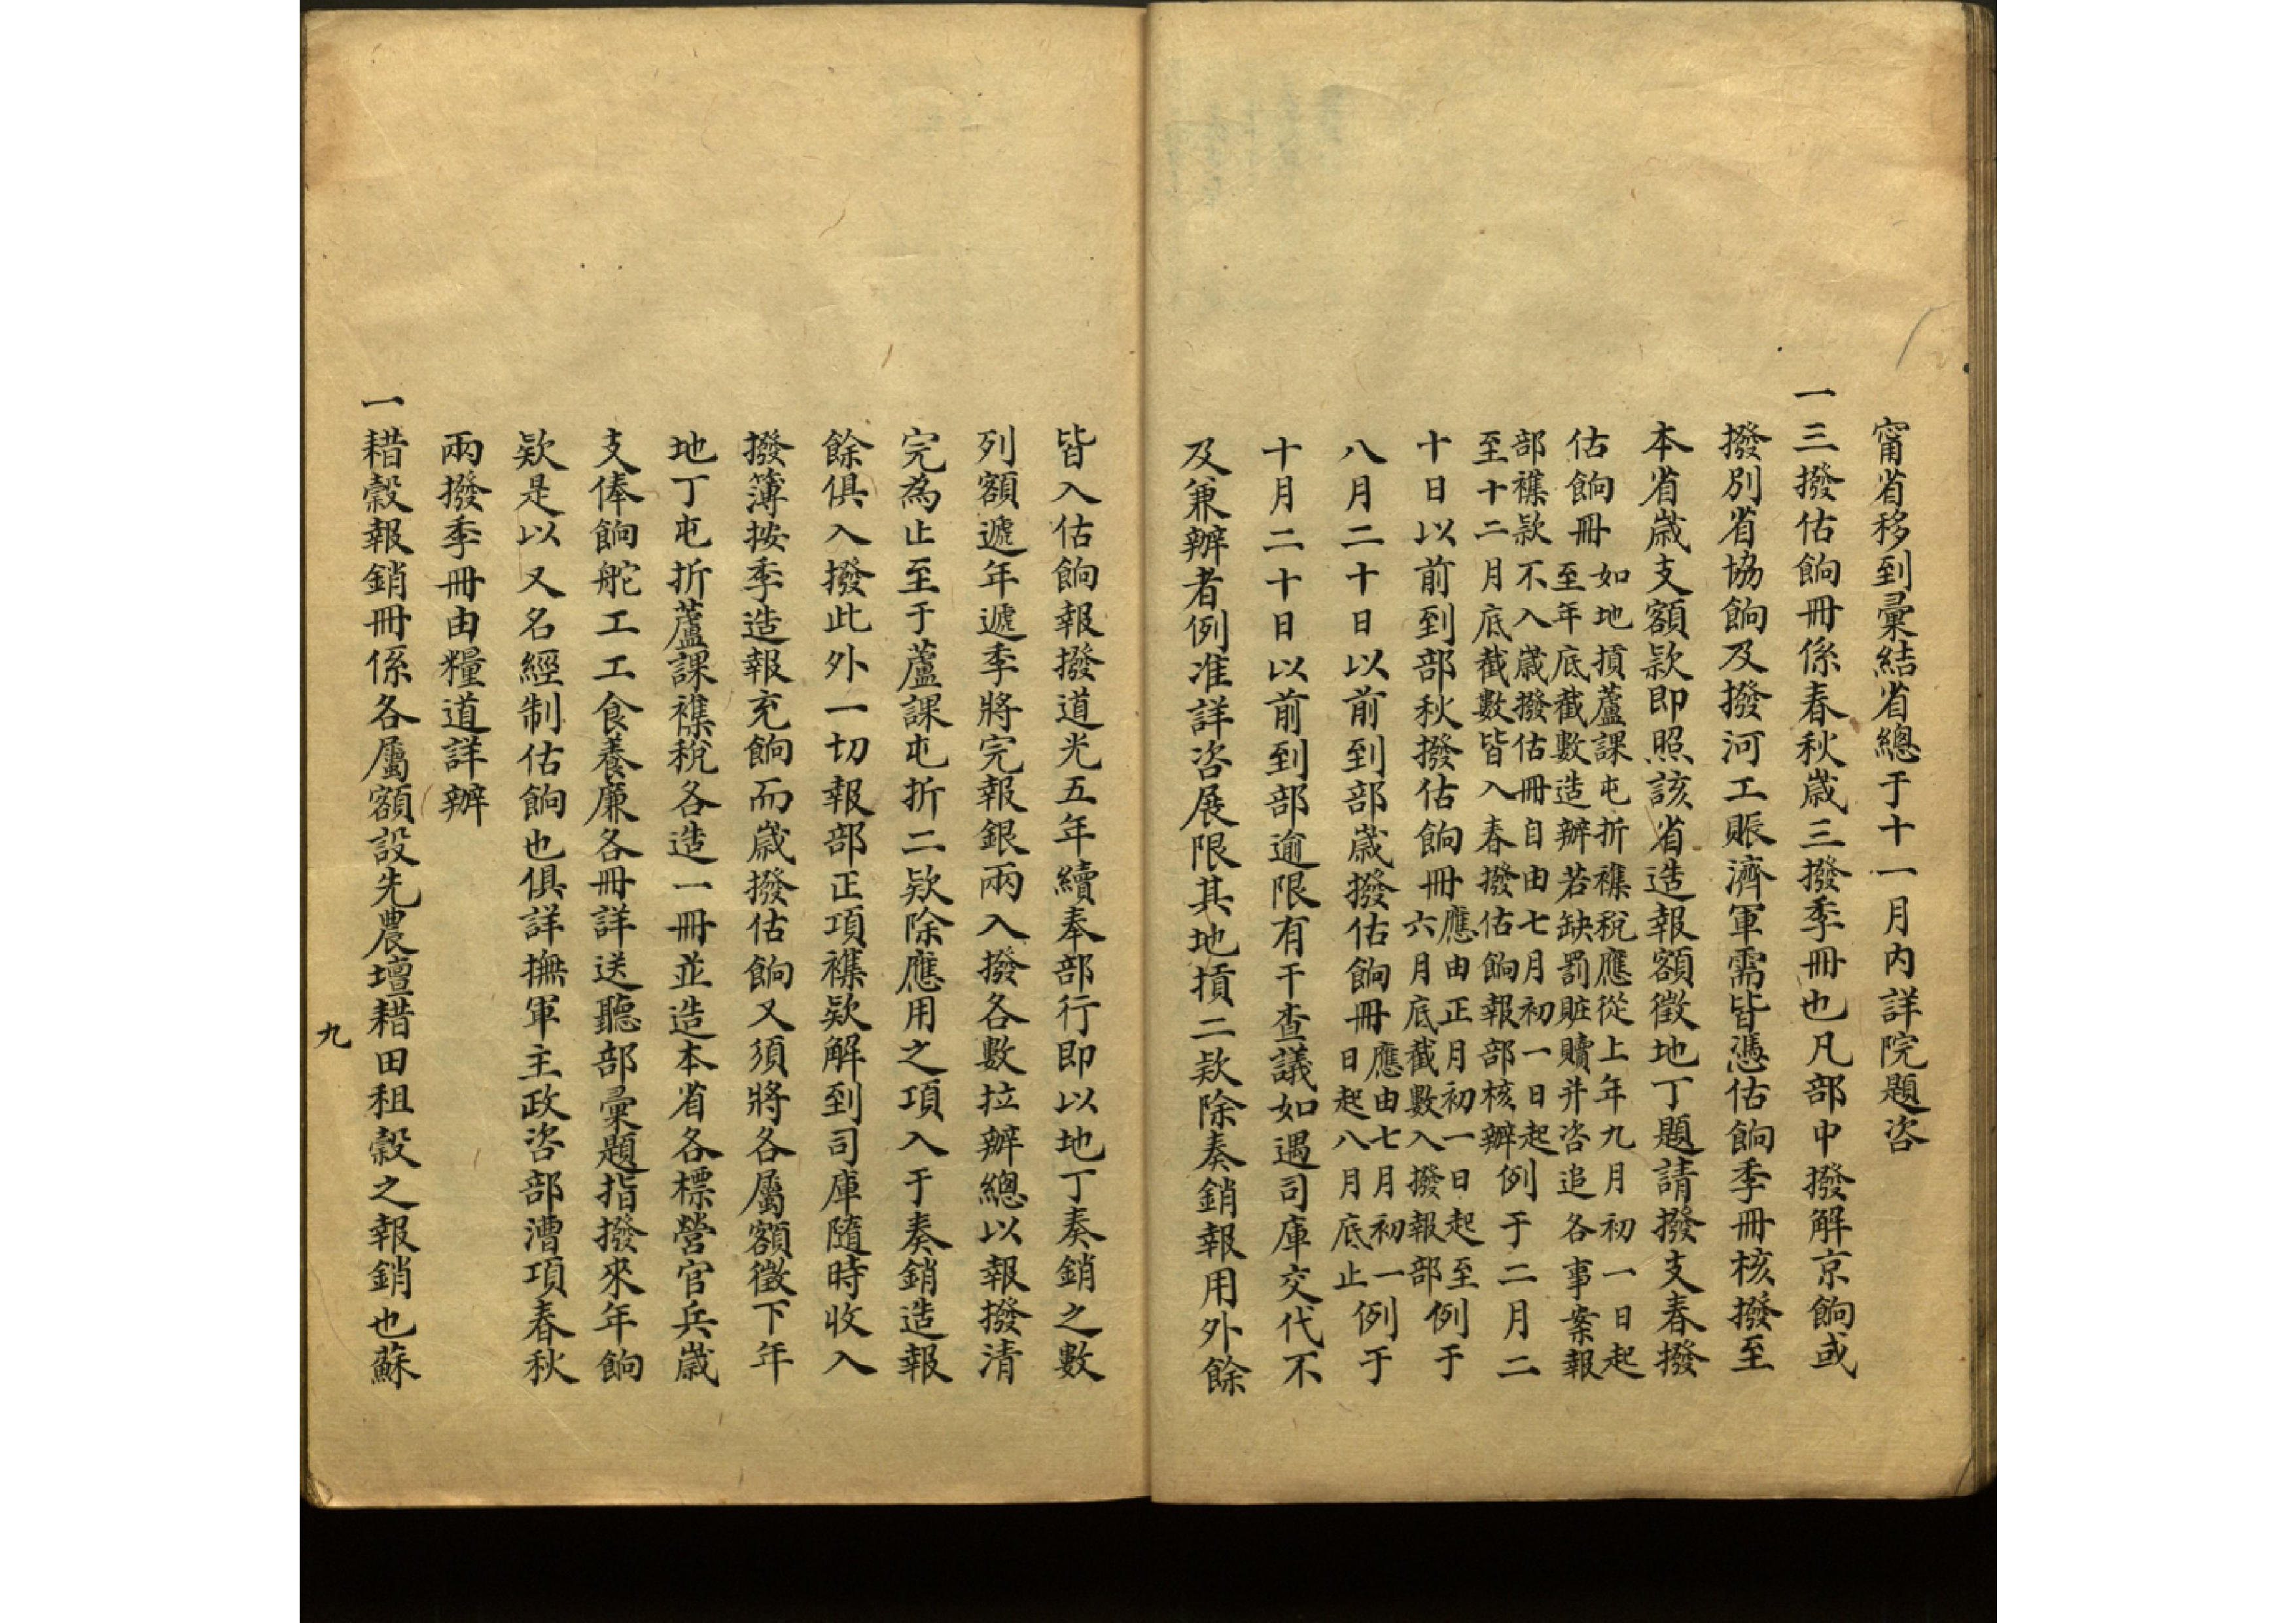 甯省移到彙結省總于十一月内詳院題咨
一三撥估餉冊係春秋歲三撥季冊也凡部中撥解京餉或
撥別省協餉及撥河工賬濟軍需皆憑估餉季冊核撥至
本省歲支額款即照該省造報額徵地丁題請撥支春撥
估餉冊如地摃蘆課屯折襍稅應從上年九月初一日起
至年底截數造辦若缺罰賍贖并咨追各事案報
部襍款不入歲撥估冊自由七月初一日起
至十二月底截數皆入春撥估餉報部核辦例于二月二
十日以前到部秋撥估餉冊應由正月初一日起至
六月底截數入撥報部例于
八月二十日以前到部歲撥估餉冊應由七月初一
日起八月底止例于
十月二十日以前到部逾限有干查議如遇司庫交代不
及兼辦者例准詳咨展限其地摃二欵除奏銷報用外餘
皆入估餉報撥道光五年續奉部行即以地丁奏銷之數
列額遞年遞季將完報銀兩入撥各數拉辦總以報撥清
完為止至于蘆課屯折二欵除應用之項入于奏銷造報
餘俱入撥此外一切報部正項襍欵解到司庫隨時收入
撥簿按季造報充餉而歲撥估餉又須將各屬額徵下年
地丁屯折蘆課襍稅各造一冊並造本省各標營官兵歲
支俸餉舵工工食養廉各冊詳送聽部彙題指撥來年餉
欵是以又名經制估餉也俱詳撫軍主政咨部漕項春秋
兩撥季冊由糧道詳辦
一耤穀報銷冊係各屬額設先農壇耤田租穀之報銷也蘇
九